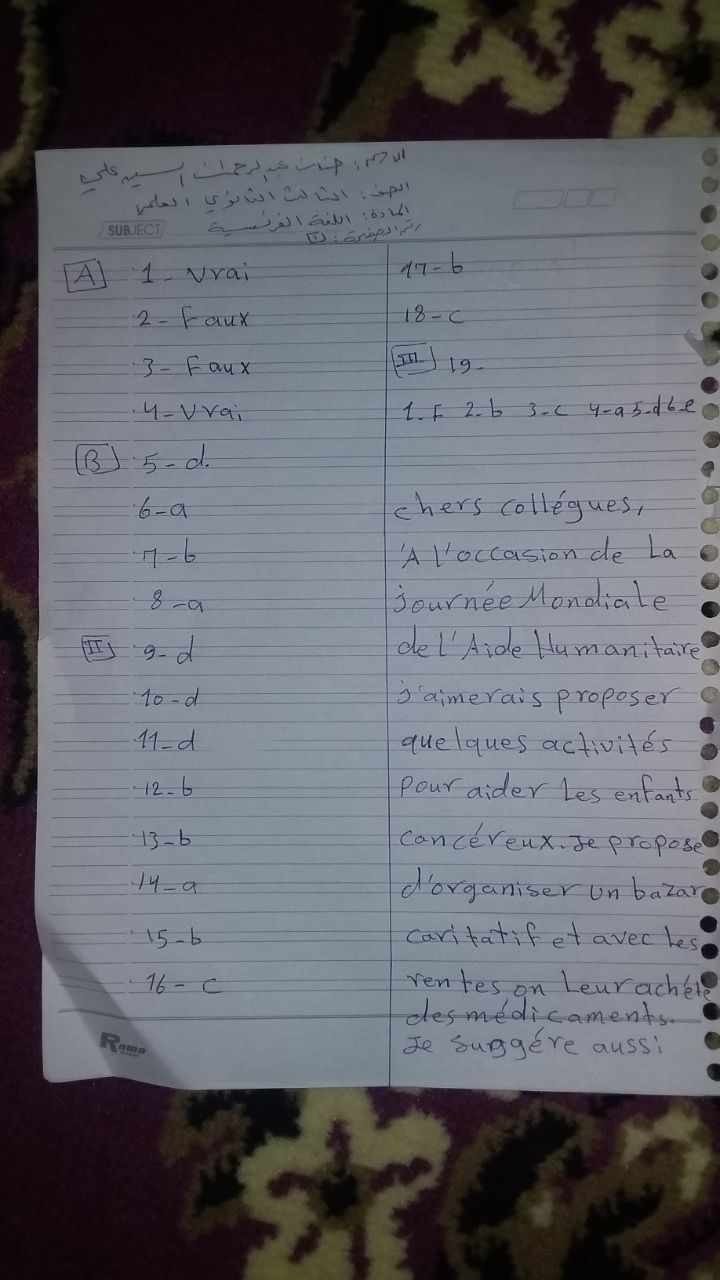 الاسم: حنان عبدالرحمن السيد علي
الصف: الثالث الثانوي العلمي
المادة: اللغة الفرنسية
رقم الصفحة: 1
SUBJECT
A 1- Vrai
2- Faux
3- Faux
4- Vrai
B 5- d.
6-a
7-b
8-a
II 9-d
10-d
11-d
12-b
13-b
14-a
15-b
16- c
17-b
18-c
III 19-
1-F 2-b 3-c 4-a 5-d 6-e
chers collégues,
'A l'occasion de la
journée Mondiale
de l'Aide Humanitaire
j'aimerais proposer
quelques activités
pour aider les enfants
cancéreux. Je propose
d'organiser un bazar
caritatif et avec les
rentes on leur achéte
des médicaments.
Je suggére aussi
Rama